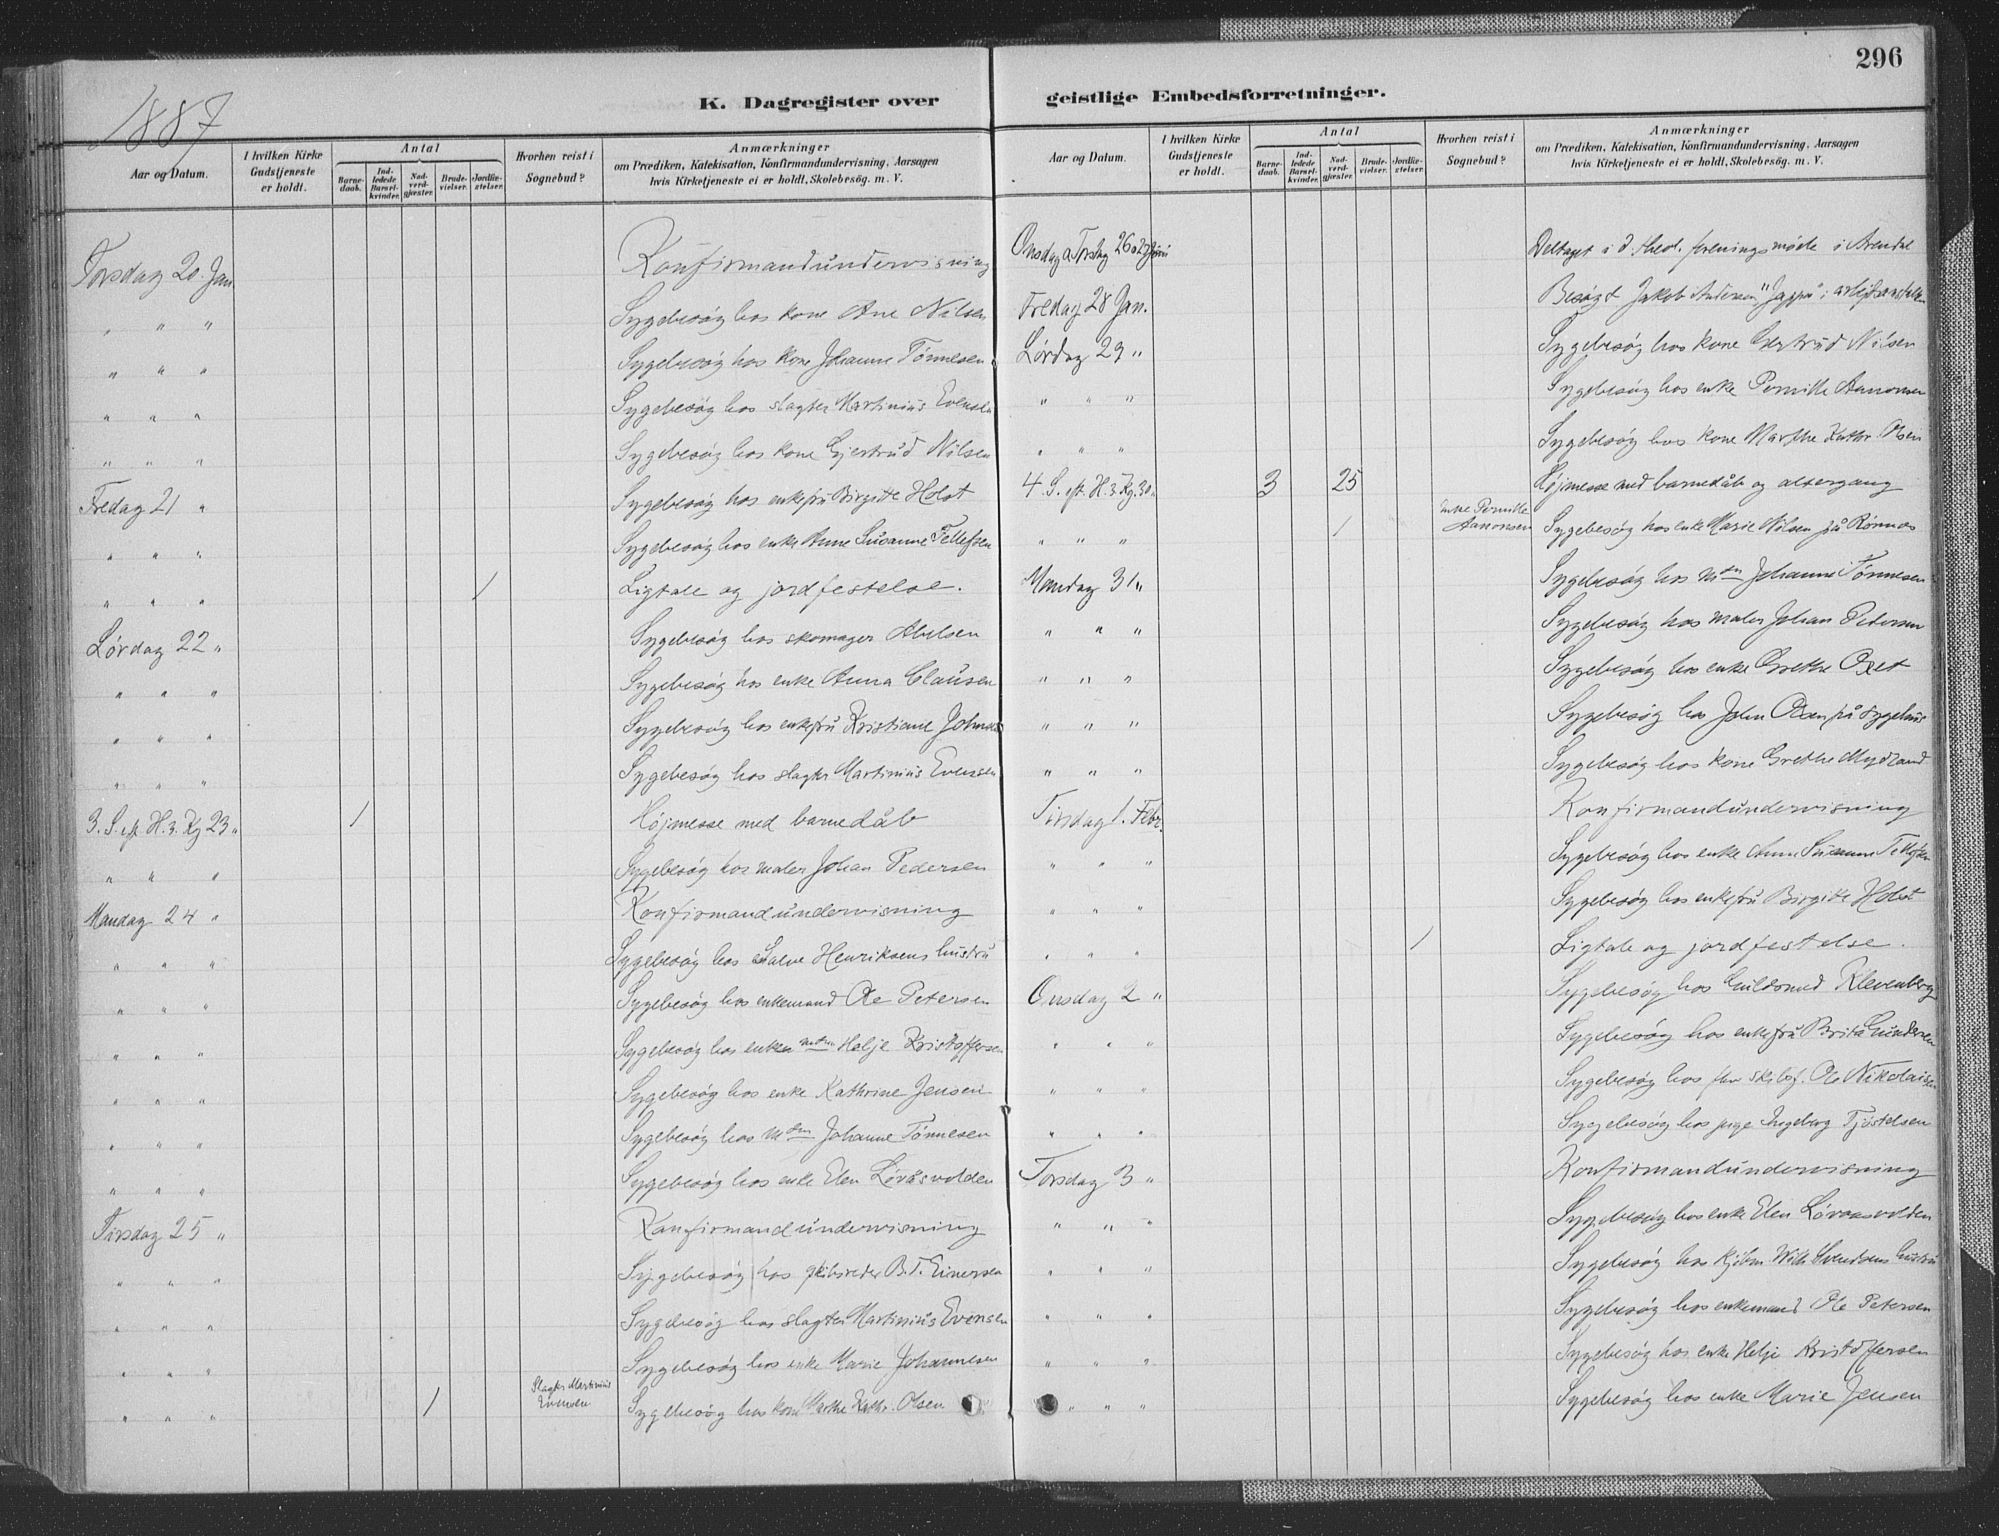 296
1887
K. Dagregister over
Aar og Datum.
I hvilken Kirke Gudstjeneste er holdt.
Antal
Barne-daab.
Ind-ledede Barsel-kvinder.
Nad-verd-gjæster.
Brude-vielser.
Jordfæ-stelser.
Hvorhen reist i Sognebud?
Anmærkninger
om Prædiken, Katekisation, Konfirmandundervisning, Aarsagen
hvis Kirketjeneste ei er holdt, Skolebesög. m. V.
Torsdag 20. Jan Konfirmandundervisning
" " " Sygebesøg hos kone Ane Nilsen
" " " Sygebesøg hos kone Johanne Tönnesen
" " " Sygebesøg hos slagter Martinius Evensen
" " " Sygebesøg hos kone Gjertrud Nilsen
Fredag 21 " Sygebesøg hos enkefru Birgitte Holst
" " " Sygebesøg hos enke Anne Susanne Tellefsen
" " " / Ligtale og jordfestelse.
Lørdag 22 " Sygebesøg hos skomager Abelsen
" " " Sygebesøg hos enke Anna Clausen
" " " Sygebesøg hos enkefru Kristiane
" " " Sygebesøg hos slagter Martinius Evensen
3. S. eft. H. 3. Kg 23 " / Højmesse med barnedåb
" " " Sygebesøg hos maler Johan Pedersen
Mandag 24 " Konfirmandundervisning
" " " Sygebesøg hos Salve Henriksens hustru
" " " Sygebesøg hos enkemand Ole Petersen
" " " Sygebesøg hos enken Helje Kristoffersen
" " " Sygebesøg hos enke Kathrine Jensen
" " " Sygebesøg hos Mdm Johanne Tönnesen
" " " Sygebesøg hos enke Elen Løvåsvolden
Tirsdag 25 " Konfirmandundervisning
" " " Sygebesøg hos skibsreder B. T. Einersen
" " " Sygebesøg hos slagter Martinius Evensen
" " " Sygebesøg hos enke Marie Johannesen
" " " / Slagter Martinius Evensen Sygebesøg hos kone Marthe Kathr. Olsen
geistlige Embedsforretninger.
Aar og Datum.
I hvilken Kirke Gudstjeneste er holdt.
Antal
Barne-daab.
Ind-ledede Barsel-kvinder.
Nad-verd-gjæster.
Brude-vielser.
Jordfæ-stelser.
Hvorhen reist i Sognebud?
Anmærkninger
om Prædiken, Katekisation, Konfirmandundervisning, Aarsagen
hvis Kirketjeneste ei er holdt, Skolebesög. m. V.
Onsdag o Torsdag 26 o 27 Deltaget i d. theol. foreningsmøde i Arendal
Fredag 28 Jan. Besøgt Jakob Andersen
Lørdag 29 " Sygebesøg hos kone Gjertrud Nilsen
" " " Sygebesøg hos enke Pernille Aanonsen
" " " Sygebesøg hos kone Marthe Kathr. Olsen
4. S. eft. H. 3. Kg. 30 " 3 25 Højmesse med barnedåb og altergang
" " " / Enke Pernille Aanonsen Sygebesøg hos enke Marie Nilsen på
Mandag 31 " Sygebesøg hos Mdm Johanne Tönnesen
" " " Sygebesøg hos maler Johan Pedersen
" " " Sygebesøg hos enke Grethe
" " " Sygebesøg hos John Olsen på sygehus
" " " Sygebesøg hos kone Grethe Mydland
Tirsdag 1. Febr. Konfirmandundervisning
" " " Sygebesøg hos enke Anne Susanne Tellefsen
" " " Sygebesøg hos enkefru Birgitte Holst
" " " / Ligtale og jordfestelse.
Onsdag 2 " Sygebesøg hos Guldsmed Klevenberg
" " " Sygebesøg hos enkefru Berita Gundersen
" " " Sygebesøg hos Ole Nikolaisen
" " " Sygebesøg hos pige Ingeborg Tjöstelsen
Torsdag 3 " Konfirmandundervisning
" " " Sygebesøg hos enke Elen Løvaasvolden
" " " Sygebesøg hos kjøbm Svendsens hustru
" " " Sygebesøg hos enkemand Ole Petersen
" " " Sygebesøg hos enke Helje Kristoffersen
" " " Sygebesøg hos enke Marie Jensen